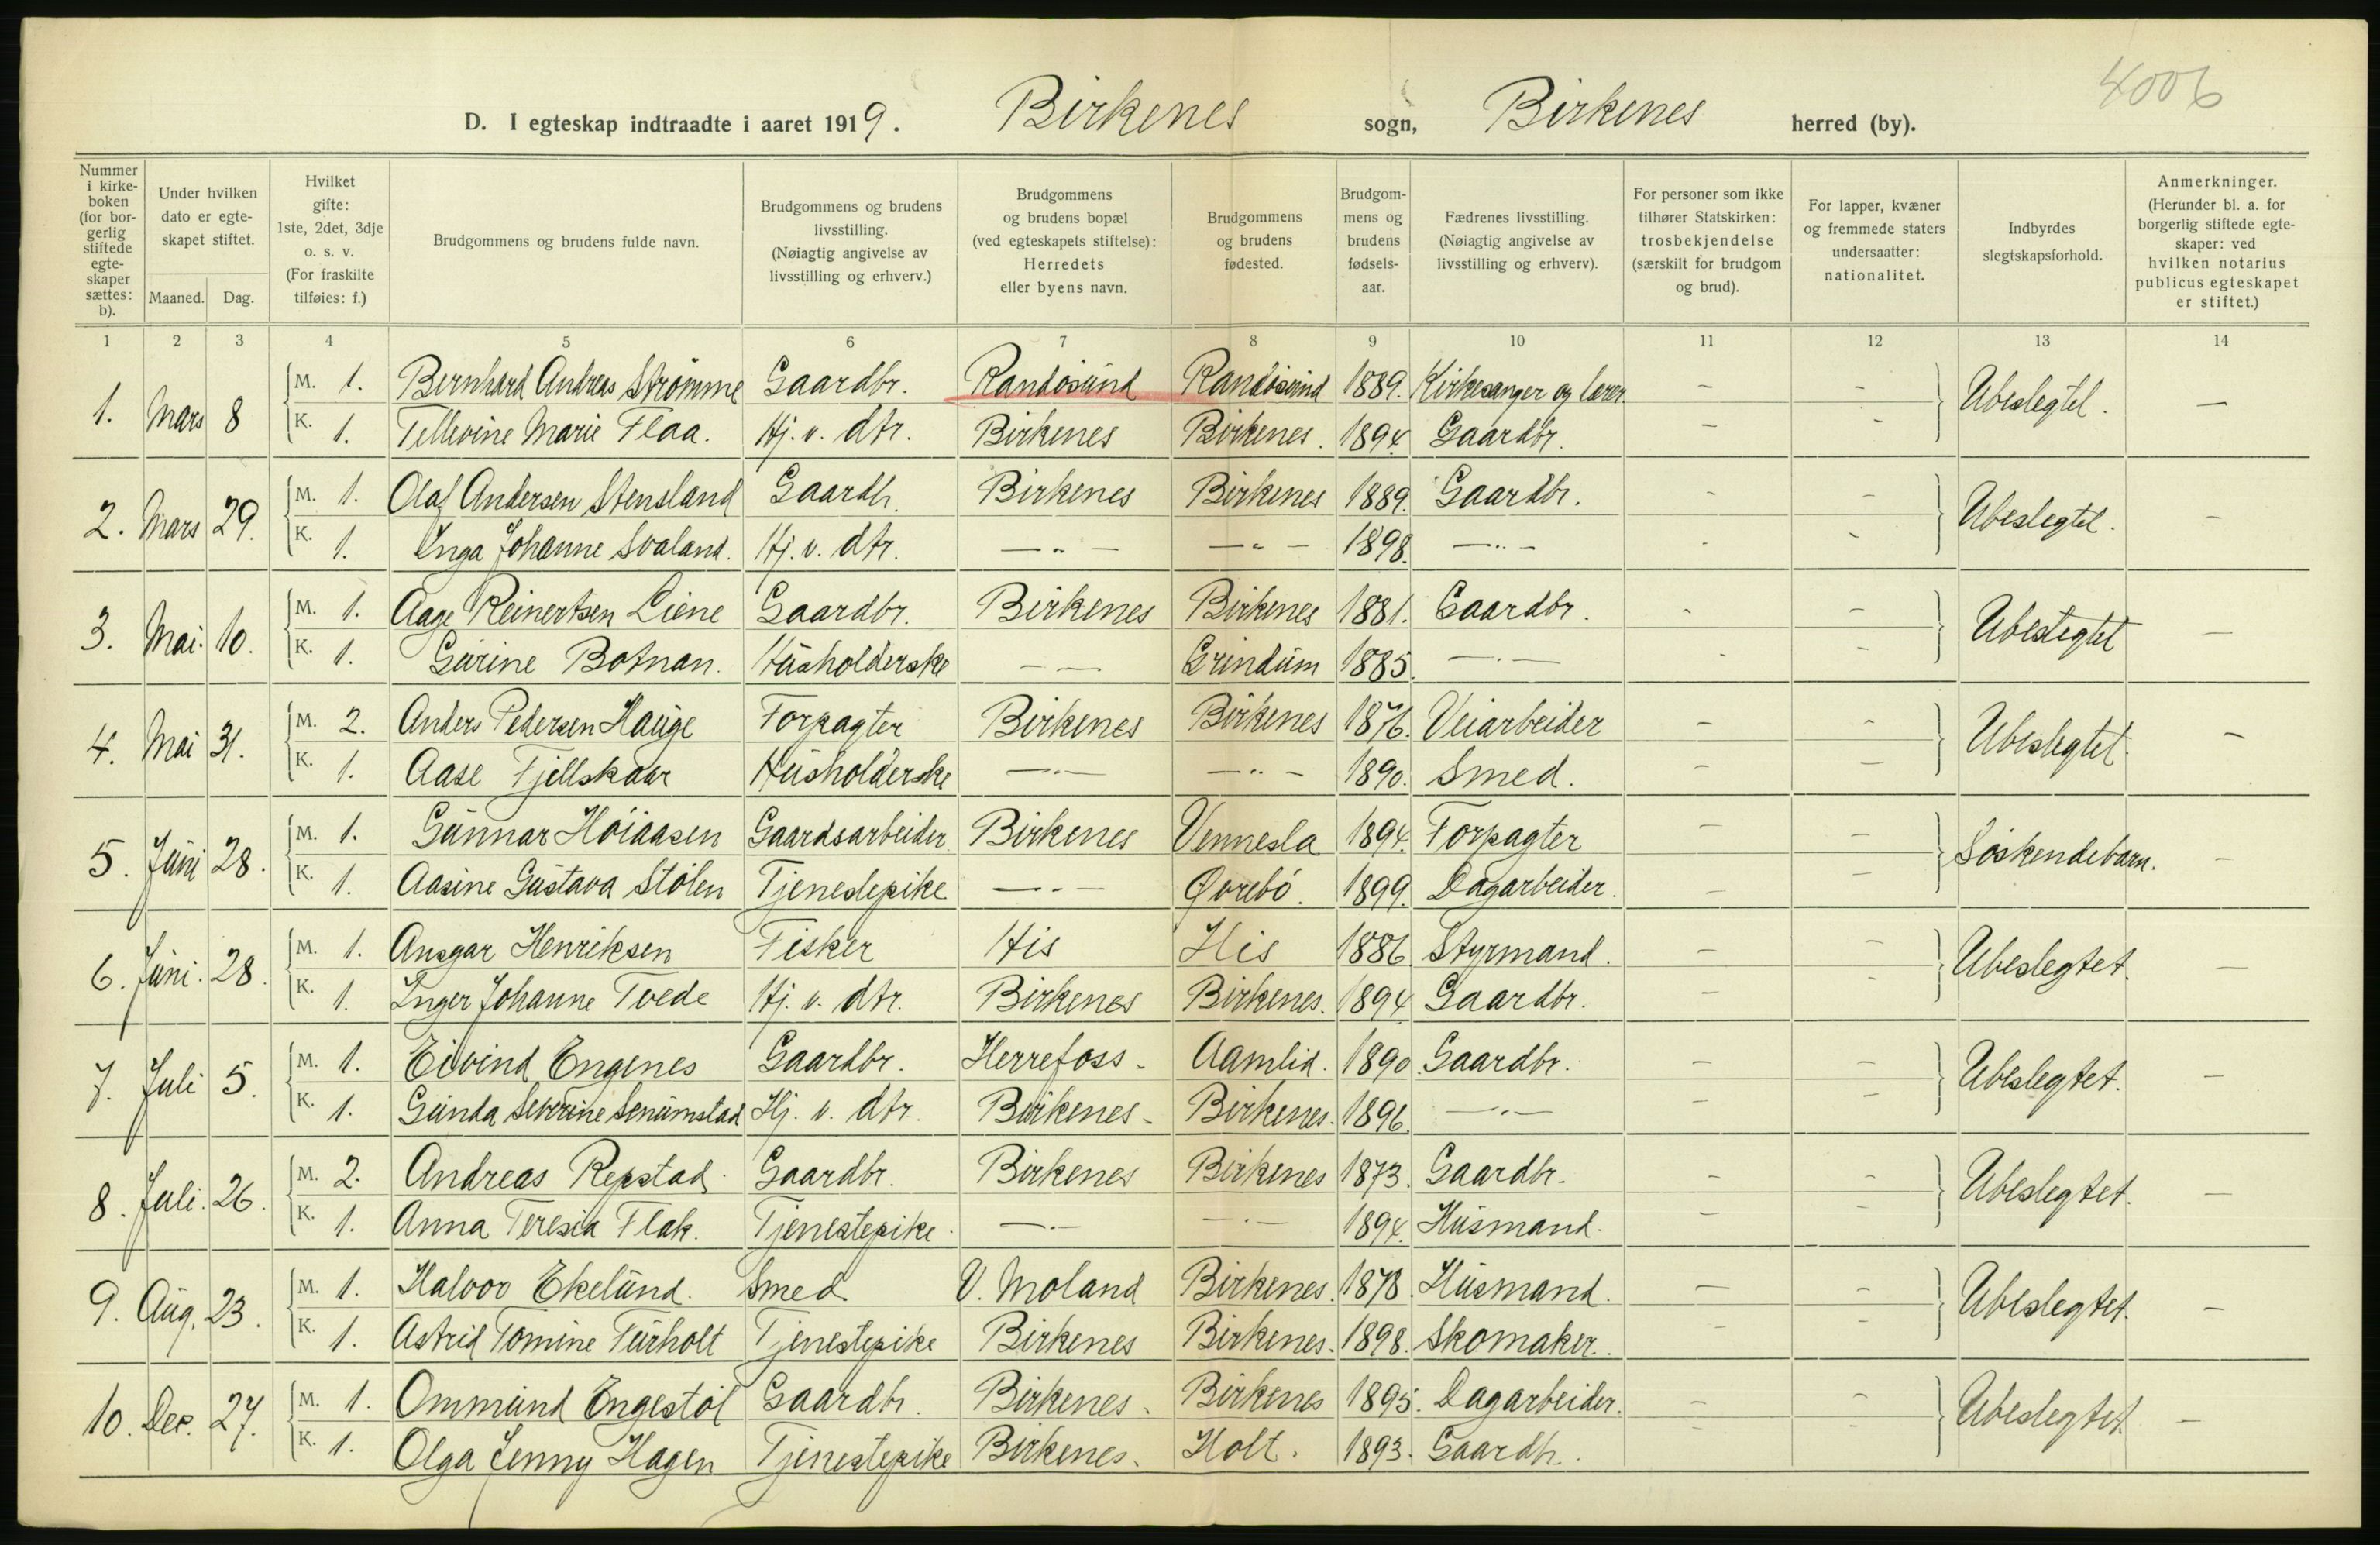 4006
D. I egteskap indtraadte i aaret 1919. Birkenes sogn, Birkenes herred (by).
Nummer i kirke-boken (for bor-gerlig stiftede egte-skaper sættes: b).
Under hvilken dato er egte-skapet stiftet.
Maaned. Dag.
Hvilket gifte: 1ste, 2det, 3dje o. s. v. (For fraskilte tilføies: f.)
Brudgommens og brudens fulde navn.
Brudgommens og brudens livsstilling. (Nøiagtig angivelse av livsstilling og erhverv.)
Brudgommens og brudens bopæl (ved egteskapets stiftelse): Herredets eller byens navn.
Brudgommens og brudens fødested.
Brudgom-mens og brudens fødsels-aar.
Fædrenes livsstilling. (Nøiagtig angivelse av livsstilling og erhverv).
For personer som ikke tilhører Statskirken: trosbekjendelse (særskilt for brudgom og brud).
For lapper, kvæner og fremmede staters undersaatter: nationalitet.
Indbyrdes slegtskapsforhold.
Anmerkninger. (Herunder bl. a. for borgerlig stiftede egte-skaper: ved hvilken notarius publicus egteskapet er stiftet.)
1 2 3 4 5 6 7 8 9 10 11 12 13 14
1. Mars 8 M. 1. Bernhard Andreas Strømme Gaardbr. Randøsund Randøsund 1889. Kirkesanger og lærer. – – Ubeslegtet. –
K. 1. Tellevine Marie Flaa. Hj. v. dtr. Birkenes Birkenes. 1894. Gaardbr. – –
2. Mars 29. M. 1. Olaf Andersen Stensland Gaardb. Birkenes Birkenes 1889. Gaardbr. – – Ubeslegtet. –
K. 1. Inga Johanne Svaland. Hj. v. dtr. –"– –"– 1898. –"– – –
3. Mai. 10. M. 1. Aage Reinertsen Liene Gaardbr. Birkenes Birkenes 1881. Gaardbr. – – Ubeslegtet –
K. 1. Gurine Botnan. Husholderske – – Grindum 1885. –"– – –
4. Mai 31. M. 2. Anders Pedersen Hauge Forpagter Birkenes Birkenes 1876. Veiarbeider – – Ubeslegtet. –
K. 1. Aase Fjellskaar Husholderske –"– –"– 1890. Smed. – –
5. Juni 28. M. 1. Gunnar Höiaasen Gaardsarbeider Birkenes Vennesla 1894. Forpagter – – Søskendebarn. –
K. 1. Aasine Gustava Stölen Tjenestepike –"– Øvrebö. 1899. Dagarbeider. – –
6. Juni. 28. M. 1. Ansgar Henriksen Fisker His His 1886. Styrmand. – – Ubeslegtet. –
K. 1. Inger Johanne Tvede Hj. v. dtr. Birkenes Birkenes. 1894. Gaardbr. – –
7. Juli 5. M. 1. Eivind Engenes Gaardbr. Herrefoss – Aamlid. 1890. Gaardbr. – – Ubeslegtet. –
K. 1. Gunda Severine Senumstad Hj. v. dtr. Birkenes – Birkenes. 1896. –"– – –
8. Juli. 26. M. 2. Andreas Repstad Gaardbr. Birkenes Birkenes 1873. Gaardbr. – – Ubeslegtet. –
K. 1. Anna Teresia Flak. Tjenestepike. –"– –"– 1894. Husmand. – –
9. Aug. 23. M. 1. Halvor Ekelund. Smed. V. Moland Birkenes. 1878. Husmand. – – Ubeslegtet. –
K. 1. Astrid Tomine Furholt Tjenestepike Birkenes Birkenes. 1898. Skomaker. – –
10. Dec. 27. M. 1. Ommund Engestöl Gaardbr. Birkenes. Birkenes 1895. Dagarbeider. – – Ubeslegtet. –
K. 1. Olga Jenny Hagen Tjenestepike Birkenes. Holt. 1893. Gaardbr. – –